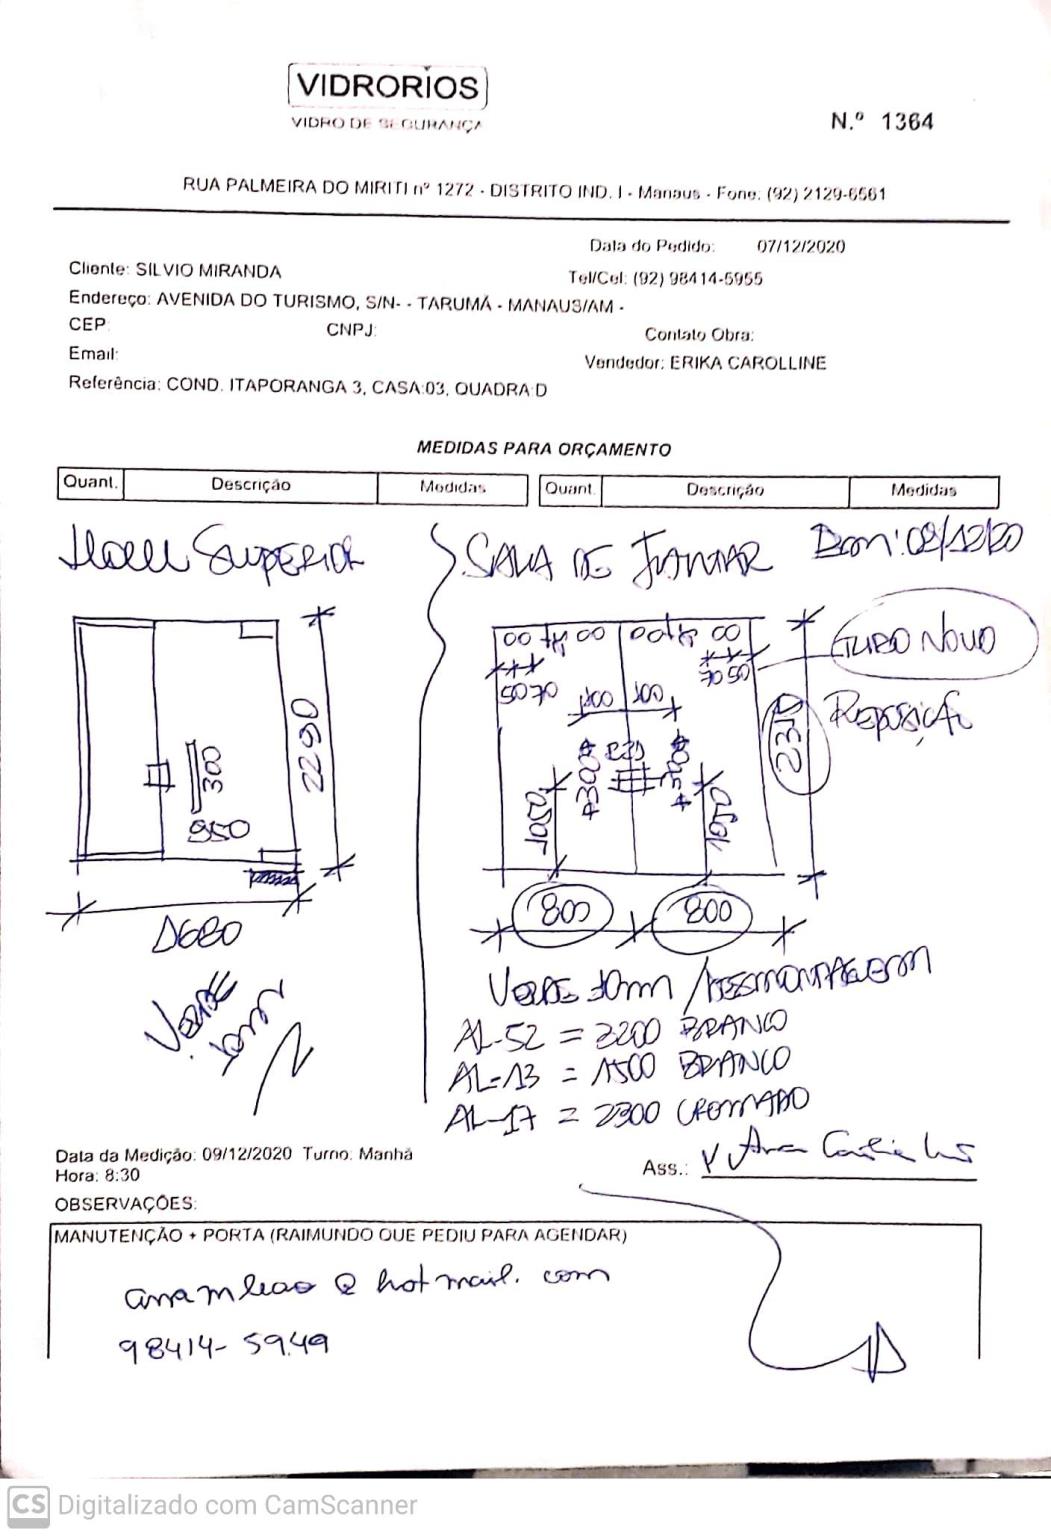 VIDRORIOS
VIDRO DE SEGURANÇA
N.º 1364
RUA PALMEIRA DO MIRITI nº 1272 - DISTRITO IND. I - Manaus - Fone: (92) 2129-6561
Data do Pedido: 07/12/2020
Cliente: SILVIO MIRANDA
Tel/Cel: (92) 98414-5955
Endereço: AVENIDA DO TURISMO, S/N- - TARUMÁ - MANAUS/AM -
CEP:
CNPJ:
Contato Obra:
Email:
Vendedor: ERIKA CAROLLINE
Referência: COND. ITAPORANGA 3, CASA:03, QUADRA:D
MEDIDAS PARA ORÇAMENTO
Quant. Descrição Medidas Quant. Descrição Medidas
Hall SUPERIOR
SALA DE JANTAR
2290
300
950
1680
VERDE
10mm
5070
7050
100 100
300
1050
1050
2310
TUBO NOVO
REPOSIÇÃO
800 800
VERDE 10mm / DESMONTAGEM
AL-52 = 2200 BRANCO
AL-13 = 1500 BRANCO
AL-17 = 2300 CROMADO
Data da Medição: 09/12/2020 Turno: Manhã
Hora: 8:30
Ass.:
OBSERVAÇÕES:
MANUTENÇÃO + PORTA (RAIMUNDO QUE PEDIU PARA AGENDAR)
anamleao @ hotmail. com
98414- 5949
CS Digitalizado com CamScanner